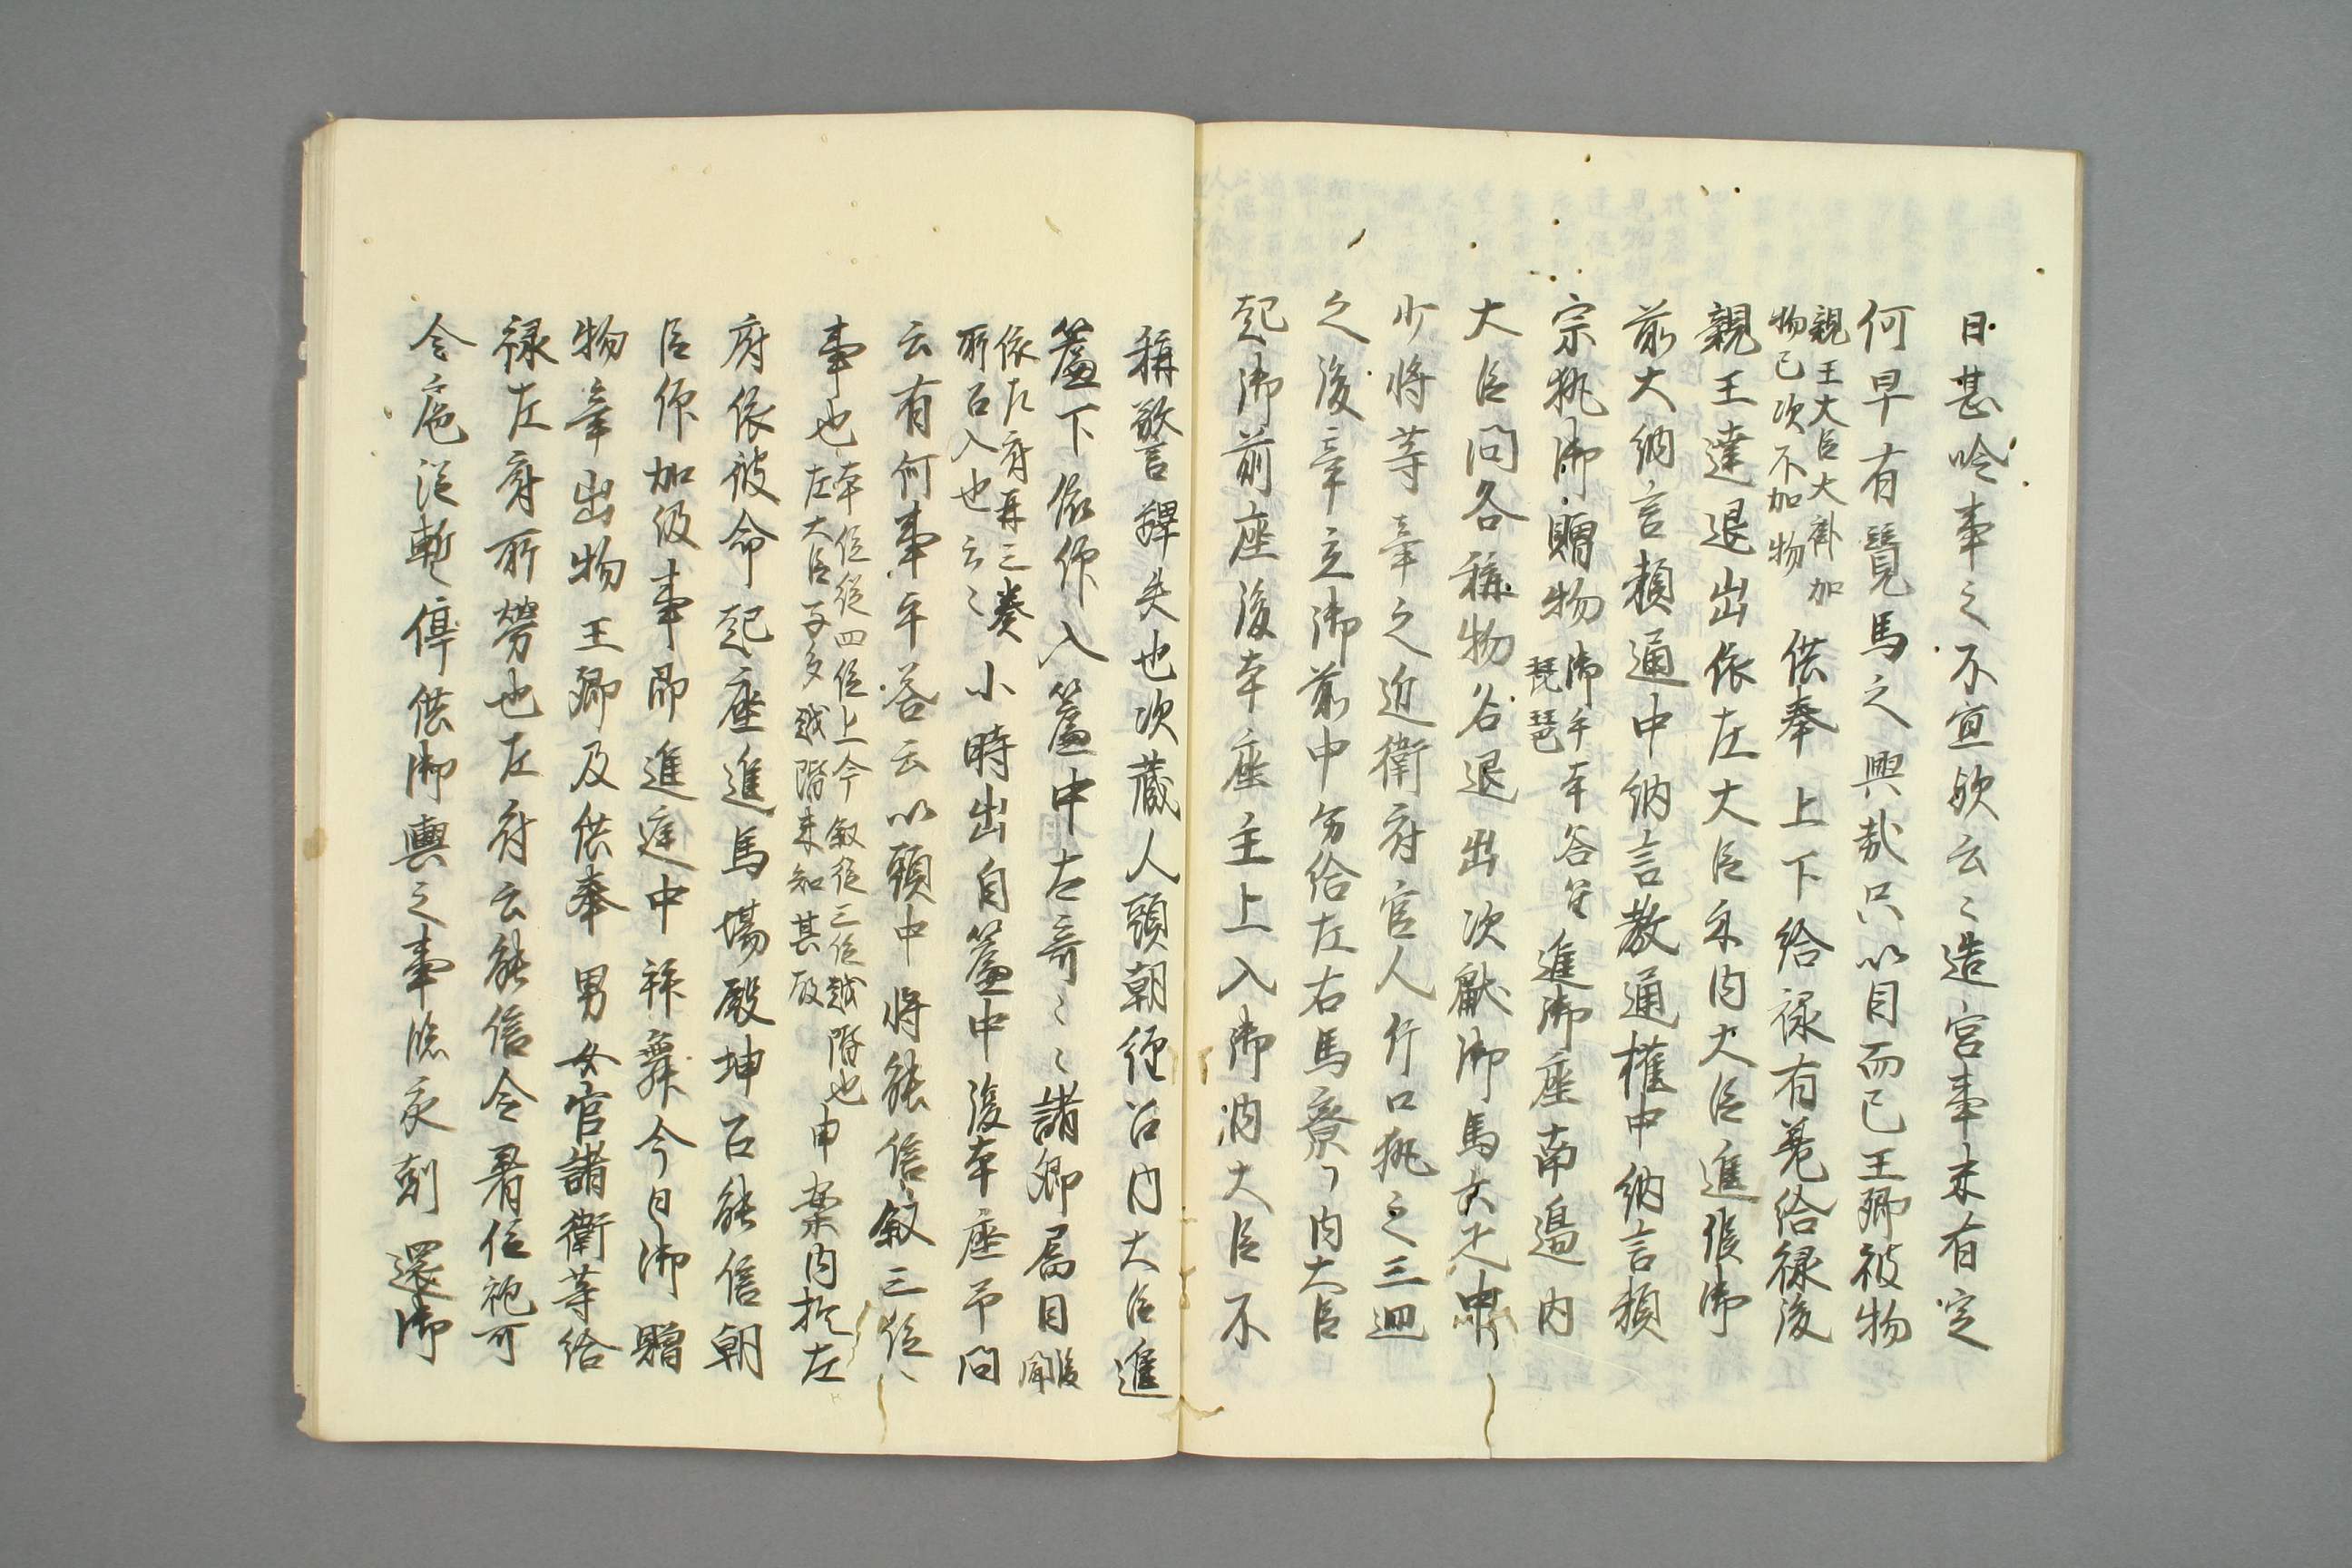 日甚吟事之不宜歟云〻造宮事未有定
何早有覽馬之興哉只以目而已王卿被物
親王大臣大褂加
物已次不加物
供奉上下給禄有差給禄後
親王達退出依左大臣示内大臣進候御
前大納言頼通中納言教通權中納言頼
宗執御贈物
御手本
琵琶
各笞進御座南邊内
大臣問各稱物名退出次獻御馬六疋中
少將等牽之近衛府官人行口執之三迴
之後牽立御前中分給左右馬寮了内大臣
起御前座後本座主上入御内大臣不
稱警蹕失也次藏人頭朝經召内大臣進
簾下依作入簾中左奇〻〻諸卿属目
後
聞
依左府再三奏
所召入也云〻
小時出自簾中復本座予問
云有何事乎答云以頭中將能信敘三位
事也
本位從四位上今敘從三位越階也
左大臣子多越階未知其故
申案内於左
府依彼命起座進馬場殿坤召能信朝
臣作加級事即進庭中拜舞今日御贈
物牽出物王卿及供奉男女官諸衛等給
禄左府所勞也左府云能信令著位袍可
令扈從暫停供御輿之事臨亥剋還御